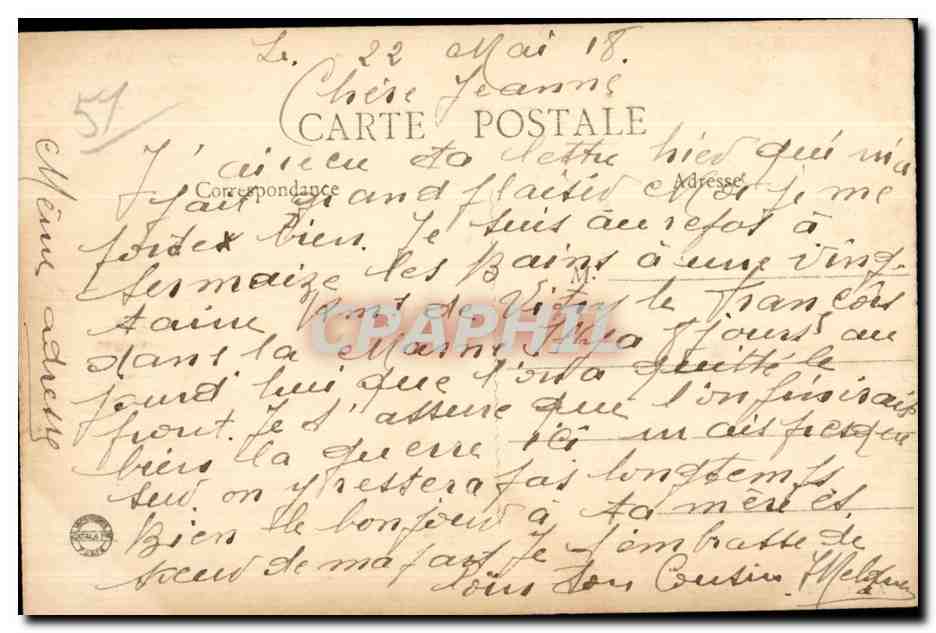 Le. 22 Mai 18.
Chère Jeanne
CARTE POSTALE
J'ai recu ta lettre hier qui m'a
Correspondance
Adresse
fait grand plaisir Moi je me
portex bien. Je suis au repos à
Sermaize les Bains à une ving-
M.
taine Kms de Vitry le François
dans la Marne Il y a 8 jours au
jourd'hui que l'on a quitté le
front. Je t'assure que l'on finirait
bien la guerre ici mais presque
sur on y restera pas longtemps
Bien le bonjour à ta mère et
soeur de ma part Je t'embrasse de
loin ton Cousin
Même adresse
51
CPAPHIL